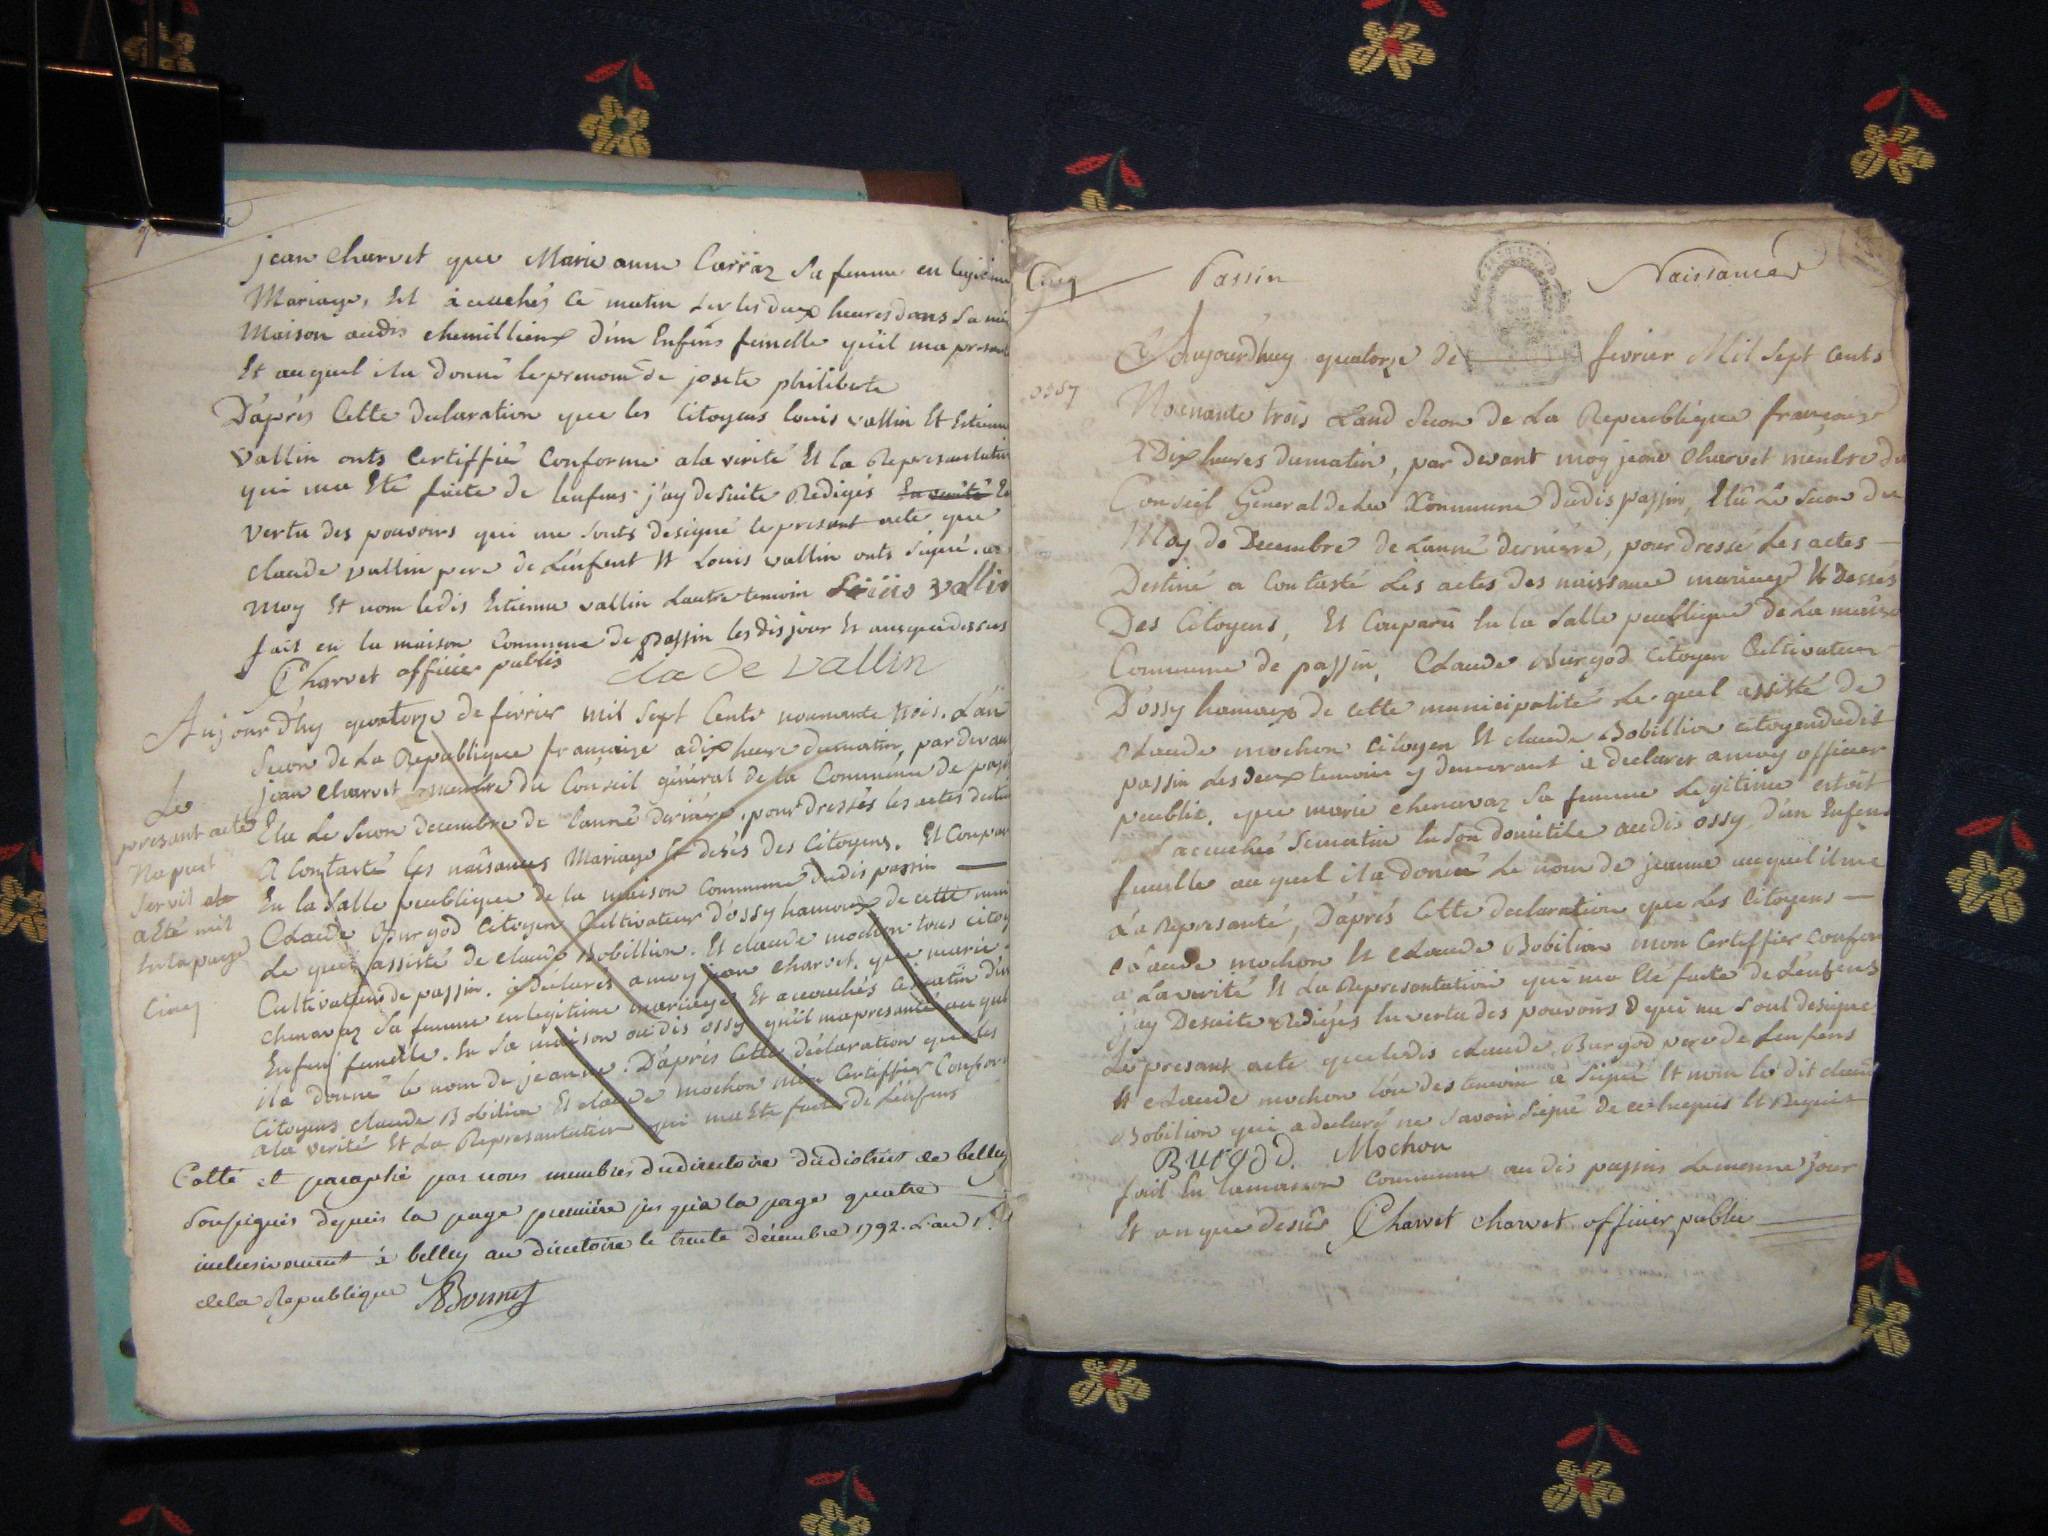 jean charvet que Marie anne Carraz Sa femme en legitime
Mariage, Et acuchés Ce matin sur les deux heures dans Sa
Maison audis chemillieux d'un Enfens femelle qu'il ma presenté
Et auquel il a donné le prenom de josete philiberte
D'aprés Cette declaration que les Citoyens louis vallin Et Etienne
Vallin onts Certiffié Conforme a la verité Et la Represantation
qui ma Eté faite de lenfens j'ay de Suite Redigés En verité En
Vertu des pouvoirs qui me Sonts designé le presant acte que
Claude vallin pere de L'énfent Et Louis vallin onts Signé avec
Moy Et nom ledis Etienne vallin Lautre temoin Loüis vallin
fait en la maison Commune de passin les dis jour Et ans que dessus
Charvet officier publis clade vallin
Aujourd'hy quatorze de fivrier mil Sept Cents nounante trois. L'an
Secon de La Republique francaize a dix heure du matin, par devant
jean charvet membre du Conseil général de la Commune de passin
Elu Le Secon decembre de l'anné derniere, pour dressés les actes destiné
A Contasté les naisances Mariage Et desés des Citoyens. Et Conparu
En la Salle peublique de la maison Commune dudis passin
Claude Burgod Citoyen Cultivateur D'ossy hamaux de cette muni
Le quel assisté de claude Bobillion. Et claude mochon tous citoy
Cultivateurs de passin. a déclarés a moy jean charvet, que marie
chenavaz Sa femme en legitime mariage Et acouchés Ce matin d'un
Enfens femelle. En Sa maison audis ossy qu'il ma presanté au quel
il a donné le nom de jeanne. D'aprés Cette déclaration que les
Citoyens claude Bobilion Et claude mochon mon Certiffier Confor
a la verité Et La Represantation qui ma Ete faite de L'énfens
Le
presant acte
Na peut
Servit
a Eté mit
En la page
Cinq
Cotté et paraphé par nous membres du directoire du district de belley
Soussignés depuis la page premiére jusqu'a la page quatre
inclusivement à belley au directoire le trente décembre 1792. L'an 1er
de la Republique Bonnet
Cinq Passin Naissances
Aujourd'huy quatorze de fevrier Mil Sept Cents
Nounante trois Land Secon de La Republique françaize
a Dix heures du matin, par devant moy jean Charvet membre du
Conseil General de La Commune dudis passin, Elû Le Secon du
Moy de Decembre de L'anné derniére, pour dressé Les actes
Destiné a Contasté Les actes des naissance mariage Et desses
Des Citoyens, Et Conparû En la Salle peublique de La méme
Commune de passin, Claude Burgod Citoyen Cultivateur
D'ossy hamaux de cette municipalité Le quel assisté de
Claude mochon Citoyen Et claude Bobillion citoyen dudit
passin Les deux temoin y demeurant a declarer a moy officier
peublic, que marie chenavaz Sa femme Legitime estoit
acuchée Se matin En Son domicile audis ossy d'un Enfens
femelle au quel il a donné Le nom de jeanne au quel il me
La Represanté, D'aprés Cette declaration que Les Citoyens
Claude mochon Et Claude Bobilion mon Certiffier Confor
a La verité Et La Represantation qui ma Eté faite de L'énfens
j'ay De suite Redigés En vertu des pouvoirs qui me Sont designé
Le presant acte que ledis Claude Burgod pere de Lenfens
Et Claude mochon l'un des temoin a Signé Et nom le dit claude
Bobilion qui a declaré ne Savoir Signé de ce Enquis Et Requis
Burgod. Mochon
fait En la maison Commune audis passin Le meme jour
Et an que dessus Charvet charvet officier public